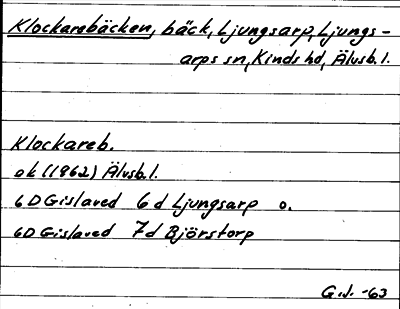 Klockarebäcken, bäck, Ljungsarp, Ljungs-
arps sn, Kinds hd, Älvsb.l.
Klockareb.
ek (1962) Älvsb.l.
6D Gislaved 6d Ljungsarp o.
6D Gislaved 7d Björstorp
G.J. -63